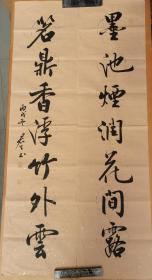 墨池煙润花间露
茗鼎香浮竹外雲
丙戌年